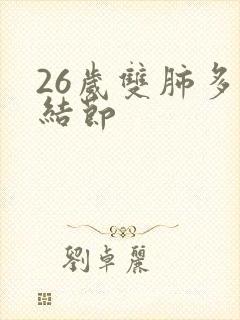 26歲雙肺多
結節
劉卓麗